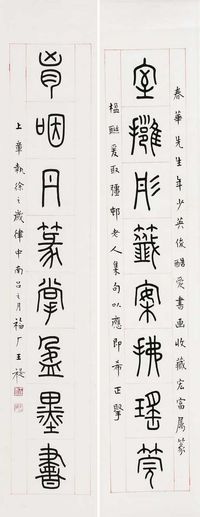 春華先生年少英俊酷愛書画收藏宏富属篆
室擁彤籤案拂瑤
楹聯爰取彊邨老人集句以應即希正擘
咽丹篆掌盈墨書
上章執徐之歲律中南呂之月福厂王禔